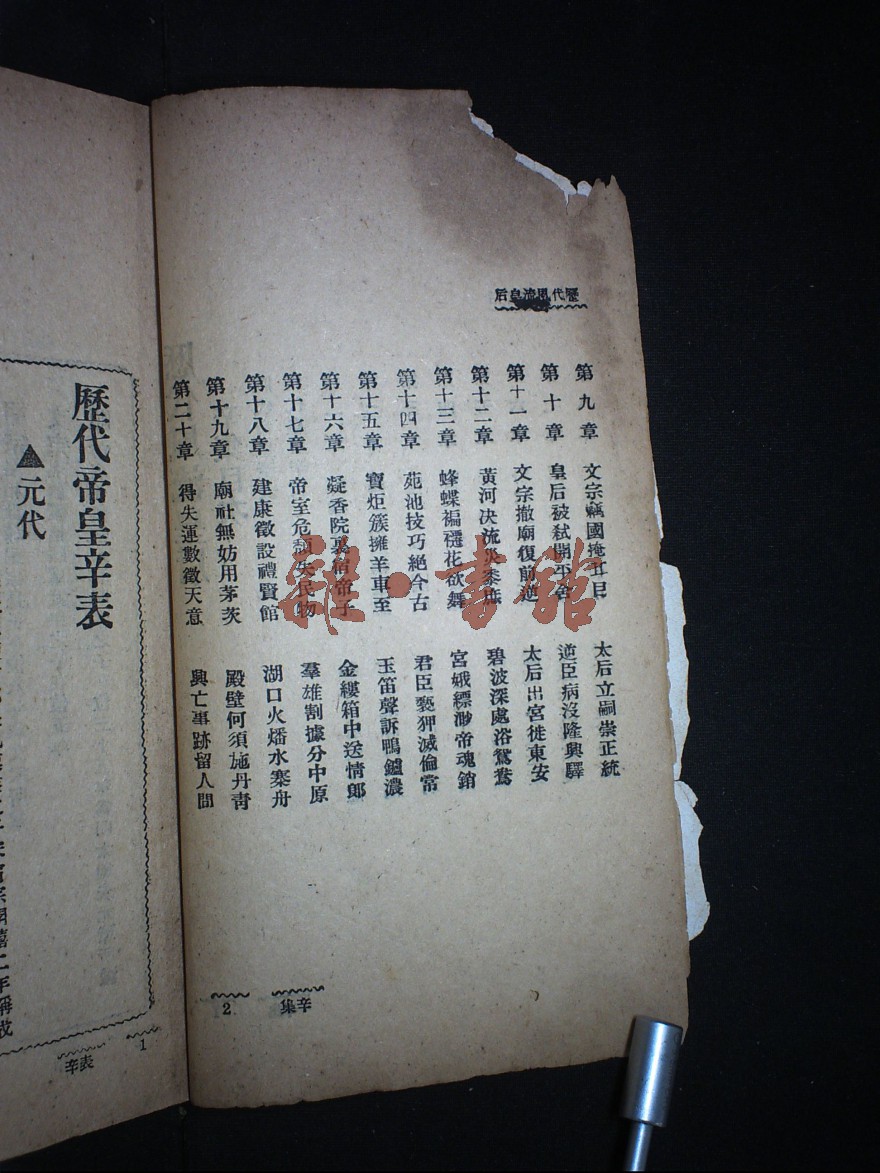 歷代風流皇后
第九章 文宗竊國掩耳目 太后立嗣崇正統
第十章 皇后被弒開平舍 逆臣病沒隆興驛
第十一章 文宗撤廟復前逆 太后出宮徙東安
第十二章 黃河決流災黍庶 碧波深處浴鴛鴦
第十三章 蜂蝶褊襹花欲舞 宮娥縹渺帝魂銷
第十四章 苑池技巧絕今古 君臣褻狎滅倫常
第十五章 寶炬簇擁羊車至 玉笛聲訴鴨鑪濃
第十六章 凝香院裏宿帝子 金縷箱中送情郎
第十七章 帝室危頹失民物 羣雄割據分中原
第十八章 建康徵設禮賢館 湖口火燔水寨舟
第十九章 廟社無妨用茅茨 殿壁何須施丹青
第二十章 得失運數徵天意 興亡事跡留人間
辛集
2
歷代帝皇辛表
▲元代
辛表
1
雜·書館